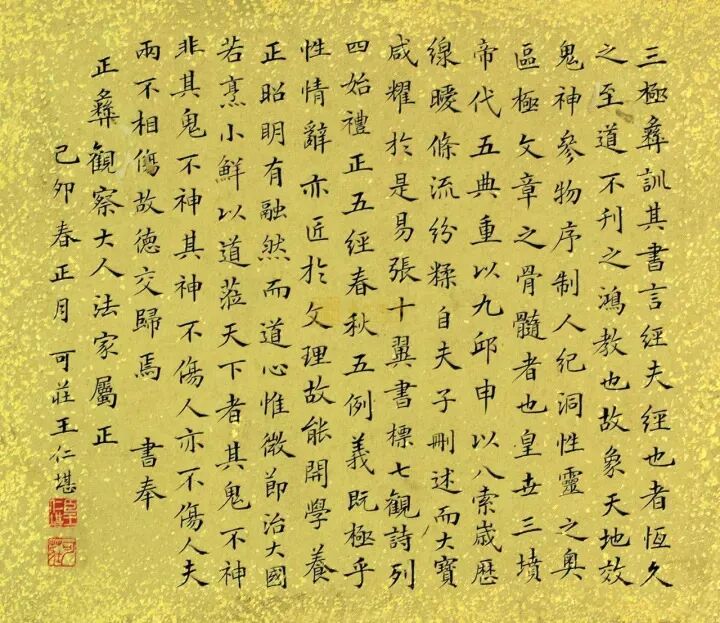 三極彝訓其書言經夫經也者恆久
之至道不刊之鴻教也故象天地效
鬼神參物序制人紀洞性靈之奧
區極文章之骨髓者也皇世三墳
帝代五典重以九邱申以八索歲歷
線曖條流紛糅自夫子刪述而大寶
咸耀於是易張十翼書標七觀詩列
四始禮正五經春秋五例義既極乎
性情辭亦匠於文理故能開學養
正昭明有融然而道心惟微節治大國
若烹小鮮以道蒞天下者其鬼不神
非其鬼不神其神不傷人亦不傷人夫
兩不相傷故德交歸焉 書奉
正彝觀察大人法家屬正
己卯春正月 可莊王仁堪